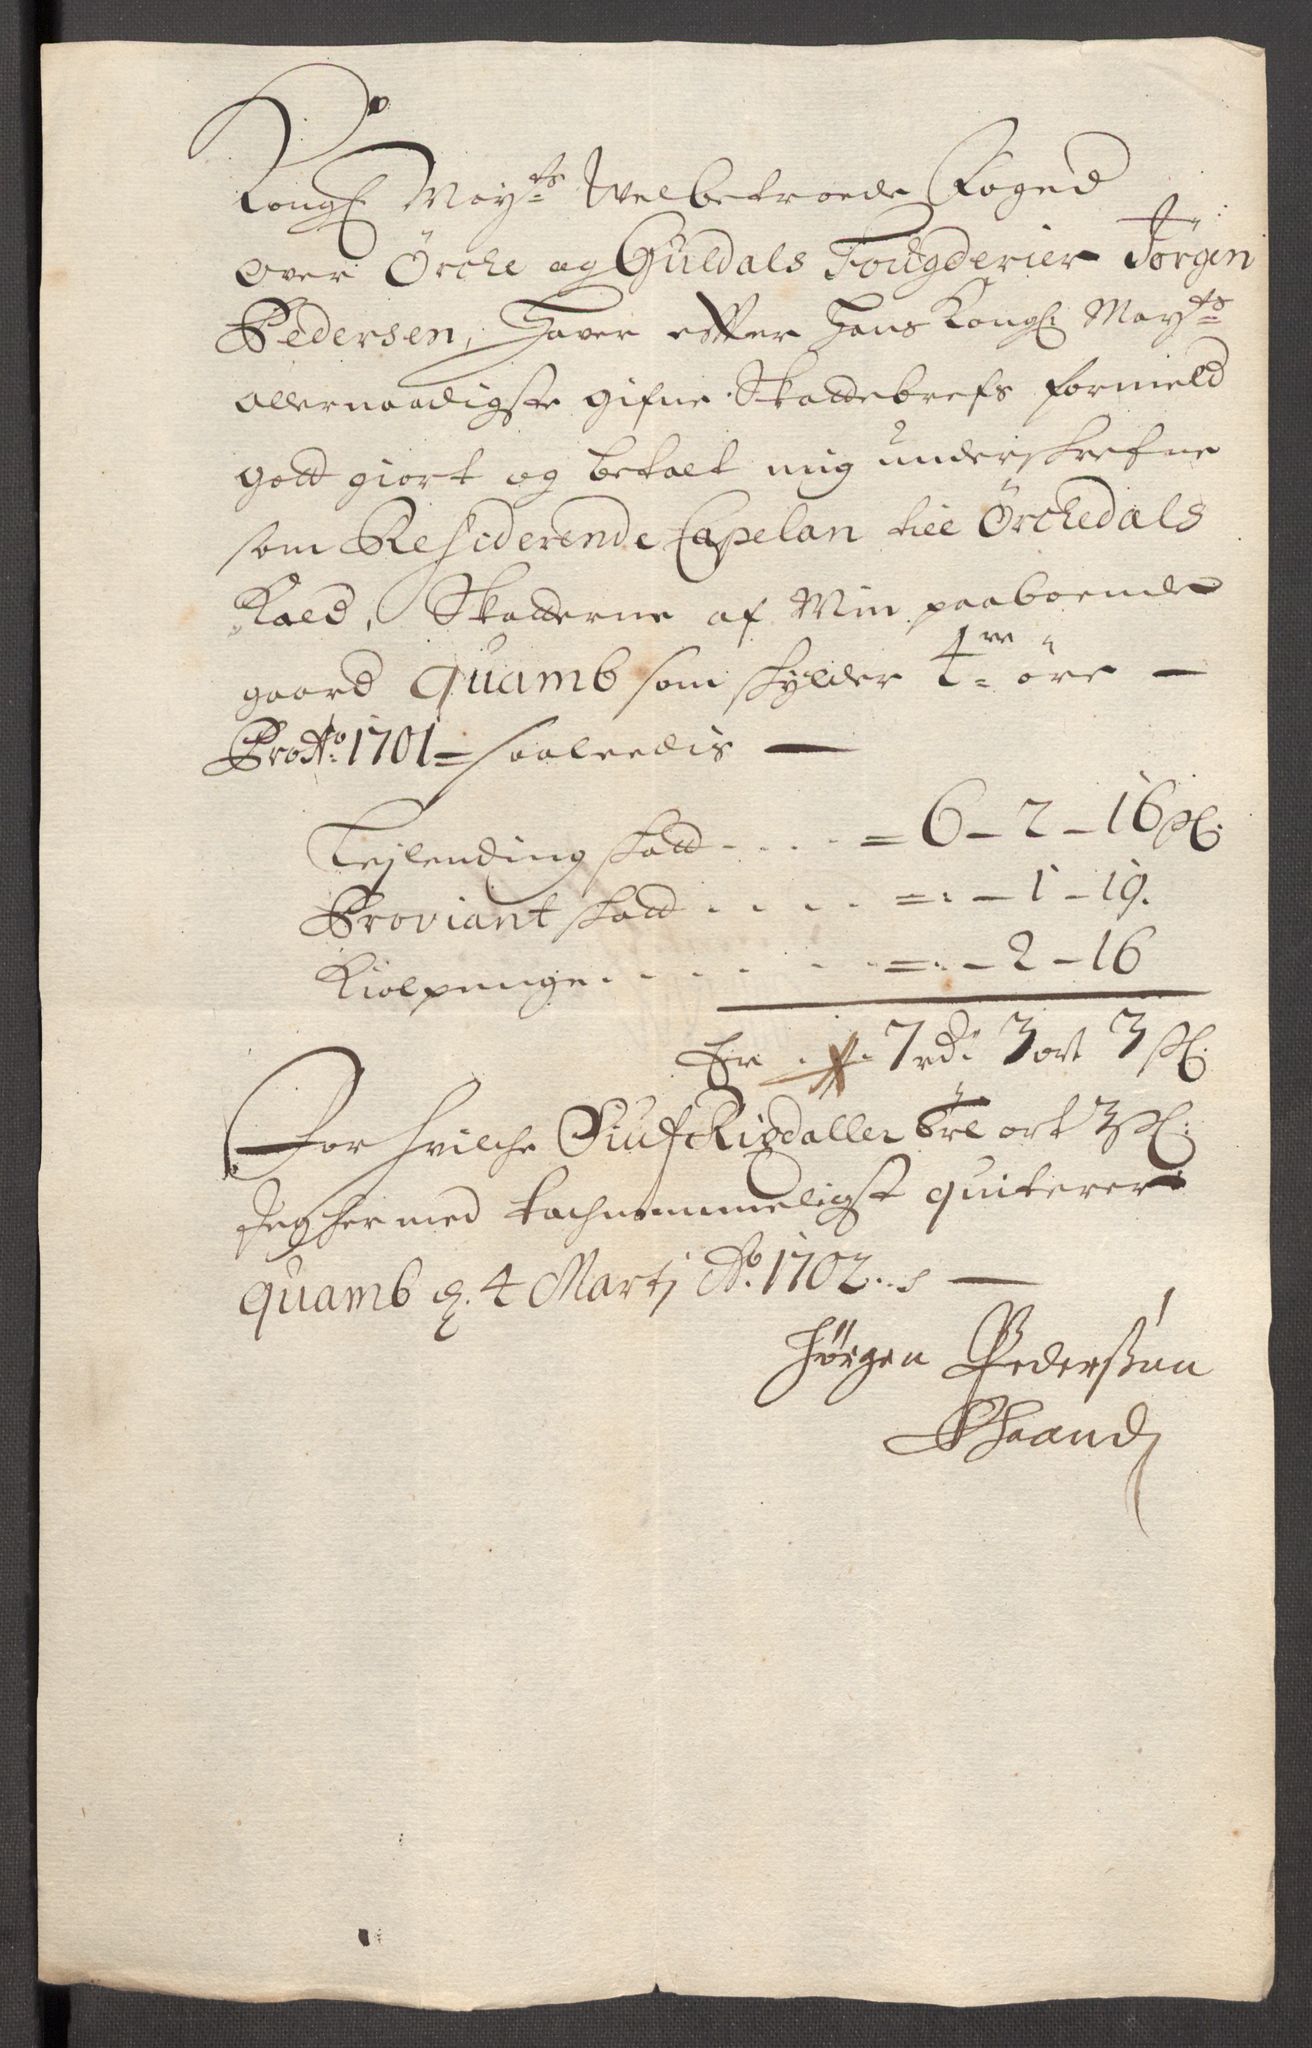 Kongl Mayts Welbetroede Foged
over Örche og Guldals Fougderier Jörgen
Pedersen, Haver effter Hans Kongl: Mayts
allernaadigste gifne Skattebrefs formeld
gott giort og betalt mig underskrefne
som Residerende Capelan till Örchedals
Kald, Skatterne af Min paaboende
gaard Quamb som skylder öre —
Pro Ao: 1701 = saaledis —
Leylending skatt . . . . = 6 – 2 – 16 sk:
Proviant skatt . . . . =: – 1 – 19.
Kiolpenge . . . . . . =: – 2 – 16
Er . . 7 rd: 3 ort 3 sk:
For hvilche Siuf Rigdaller ort 3 sk:
Jeg hermed tachnemmeligst quiterer
Quamb d. 4 Martj Ao. 1702. —
Jörgen Pederssen